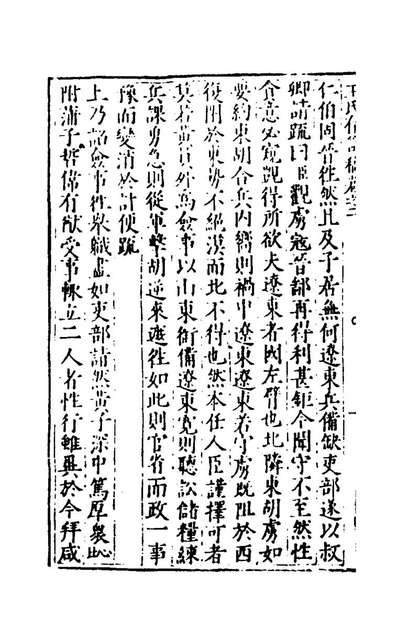 仁伯同昏徃然且及子若無何遼東兵備缺吏部遂以叔
卿請疏曰臣觀虜寇昏鄗再得利甚鉅今聞守不至然性
食意必窺覬得所欲夫遼東者國左臂也北隣東胡虜如
要約東胡合兵内嚮則禍中遼東遼東若守虜既阻於西
復閉於東勢不絕漠而北不得也然本任人臣謹擇可者
莫若黃員外爲僉事以山東銜備遼東寛則聽訟儲糧練
兵課勇急則從軍擊胡逆來遮徃如此則官省而政一事
豫而變消於計便疏
上乃詔僉事徃欽職盡如吏部請然黃子深中篤厚裴
附蒲子哲偉有猷受事輙立二人者性行雖異於今拜咸